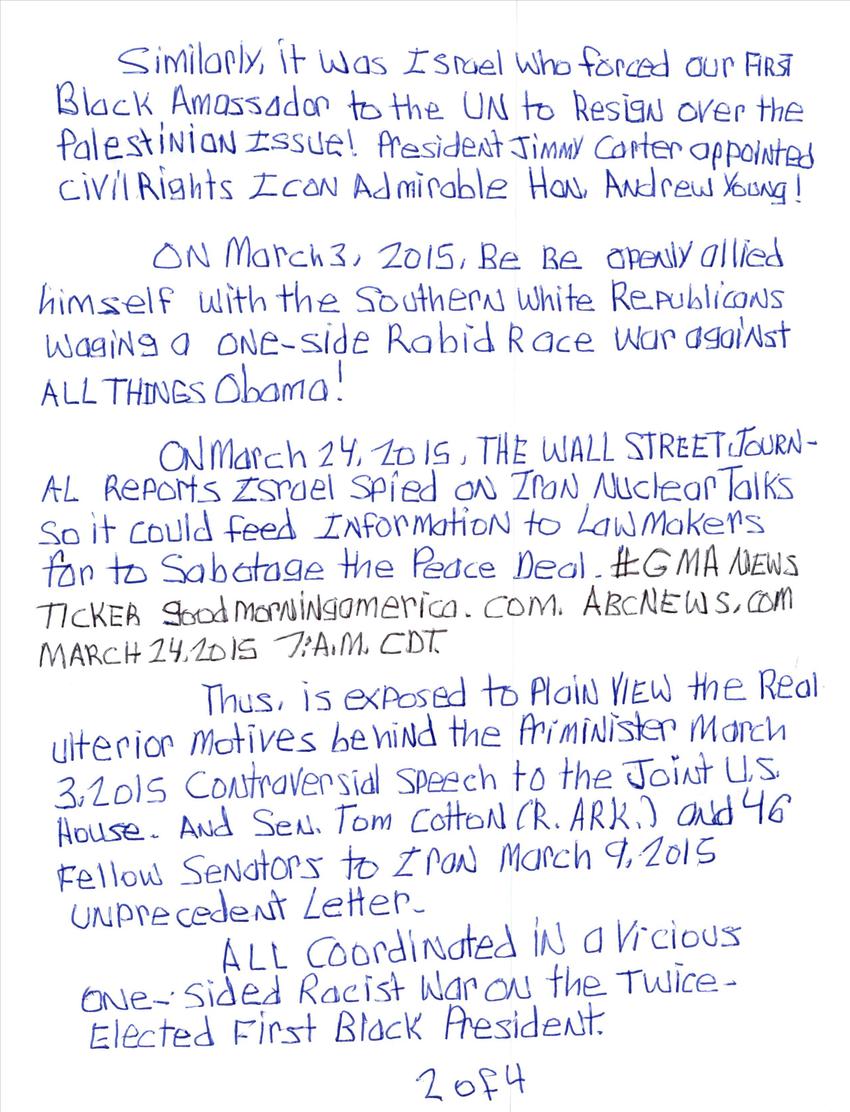 Similarly, it was Israel who forced our FIRST
Black Amassador to the UN to Resign over the
Palestinian Issue! President Jimmy Carter appointed
Civil Rights Icon Admirable Hon. Andrew Young!
ON March 3, 2015, Be Be openly allied
himself with the Southern White Republicans
waging a one-side Rabid Race War against
ALL THINGS Obama!
ON March 24, 2015, THE WALL STREET JOURN-
AL Reports Israel Spied on Iran Nuclear Talks
So it could feed Information to LawMakers
for to Sabotage the Peace Deal. #GMA NEWS
TICKER goodmorningamerica.com. ABCNEWS.COM
MARCH 24, 2015 7:A.M. CDT.
Thus, is exposed to Plain VIEW the Real
ulterior motives behind the Priminister March
3, 2015 Controversial Speech to the Joint U.S.
House. And Sen. Tom Cotton (R. ARK.) and 46
Fellow Senators to Iran March 9, 2015
unprecedent Letter.
ALL Coordinated in a Vicious
One-Sided Racist War on the Twice-
Elected First Black President.
2 of 4